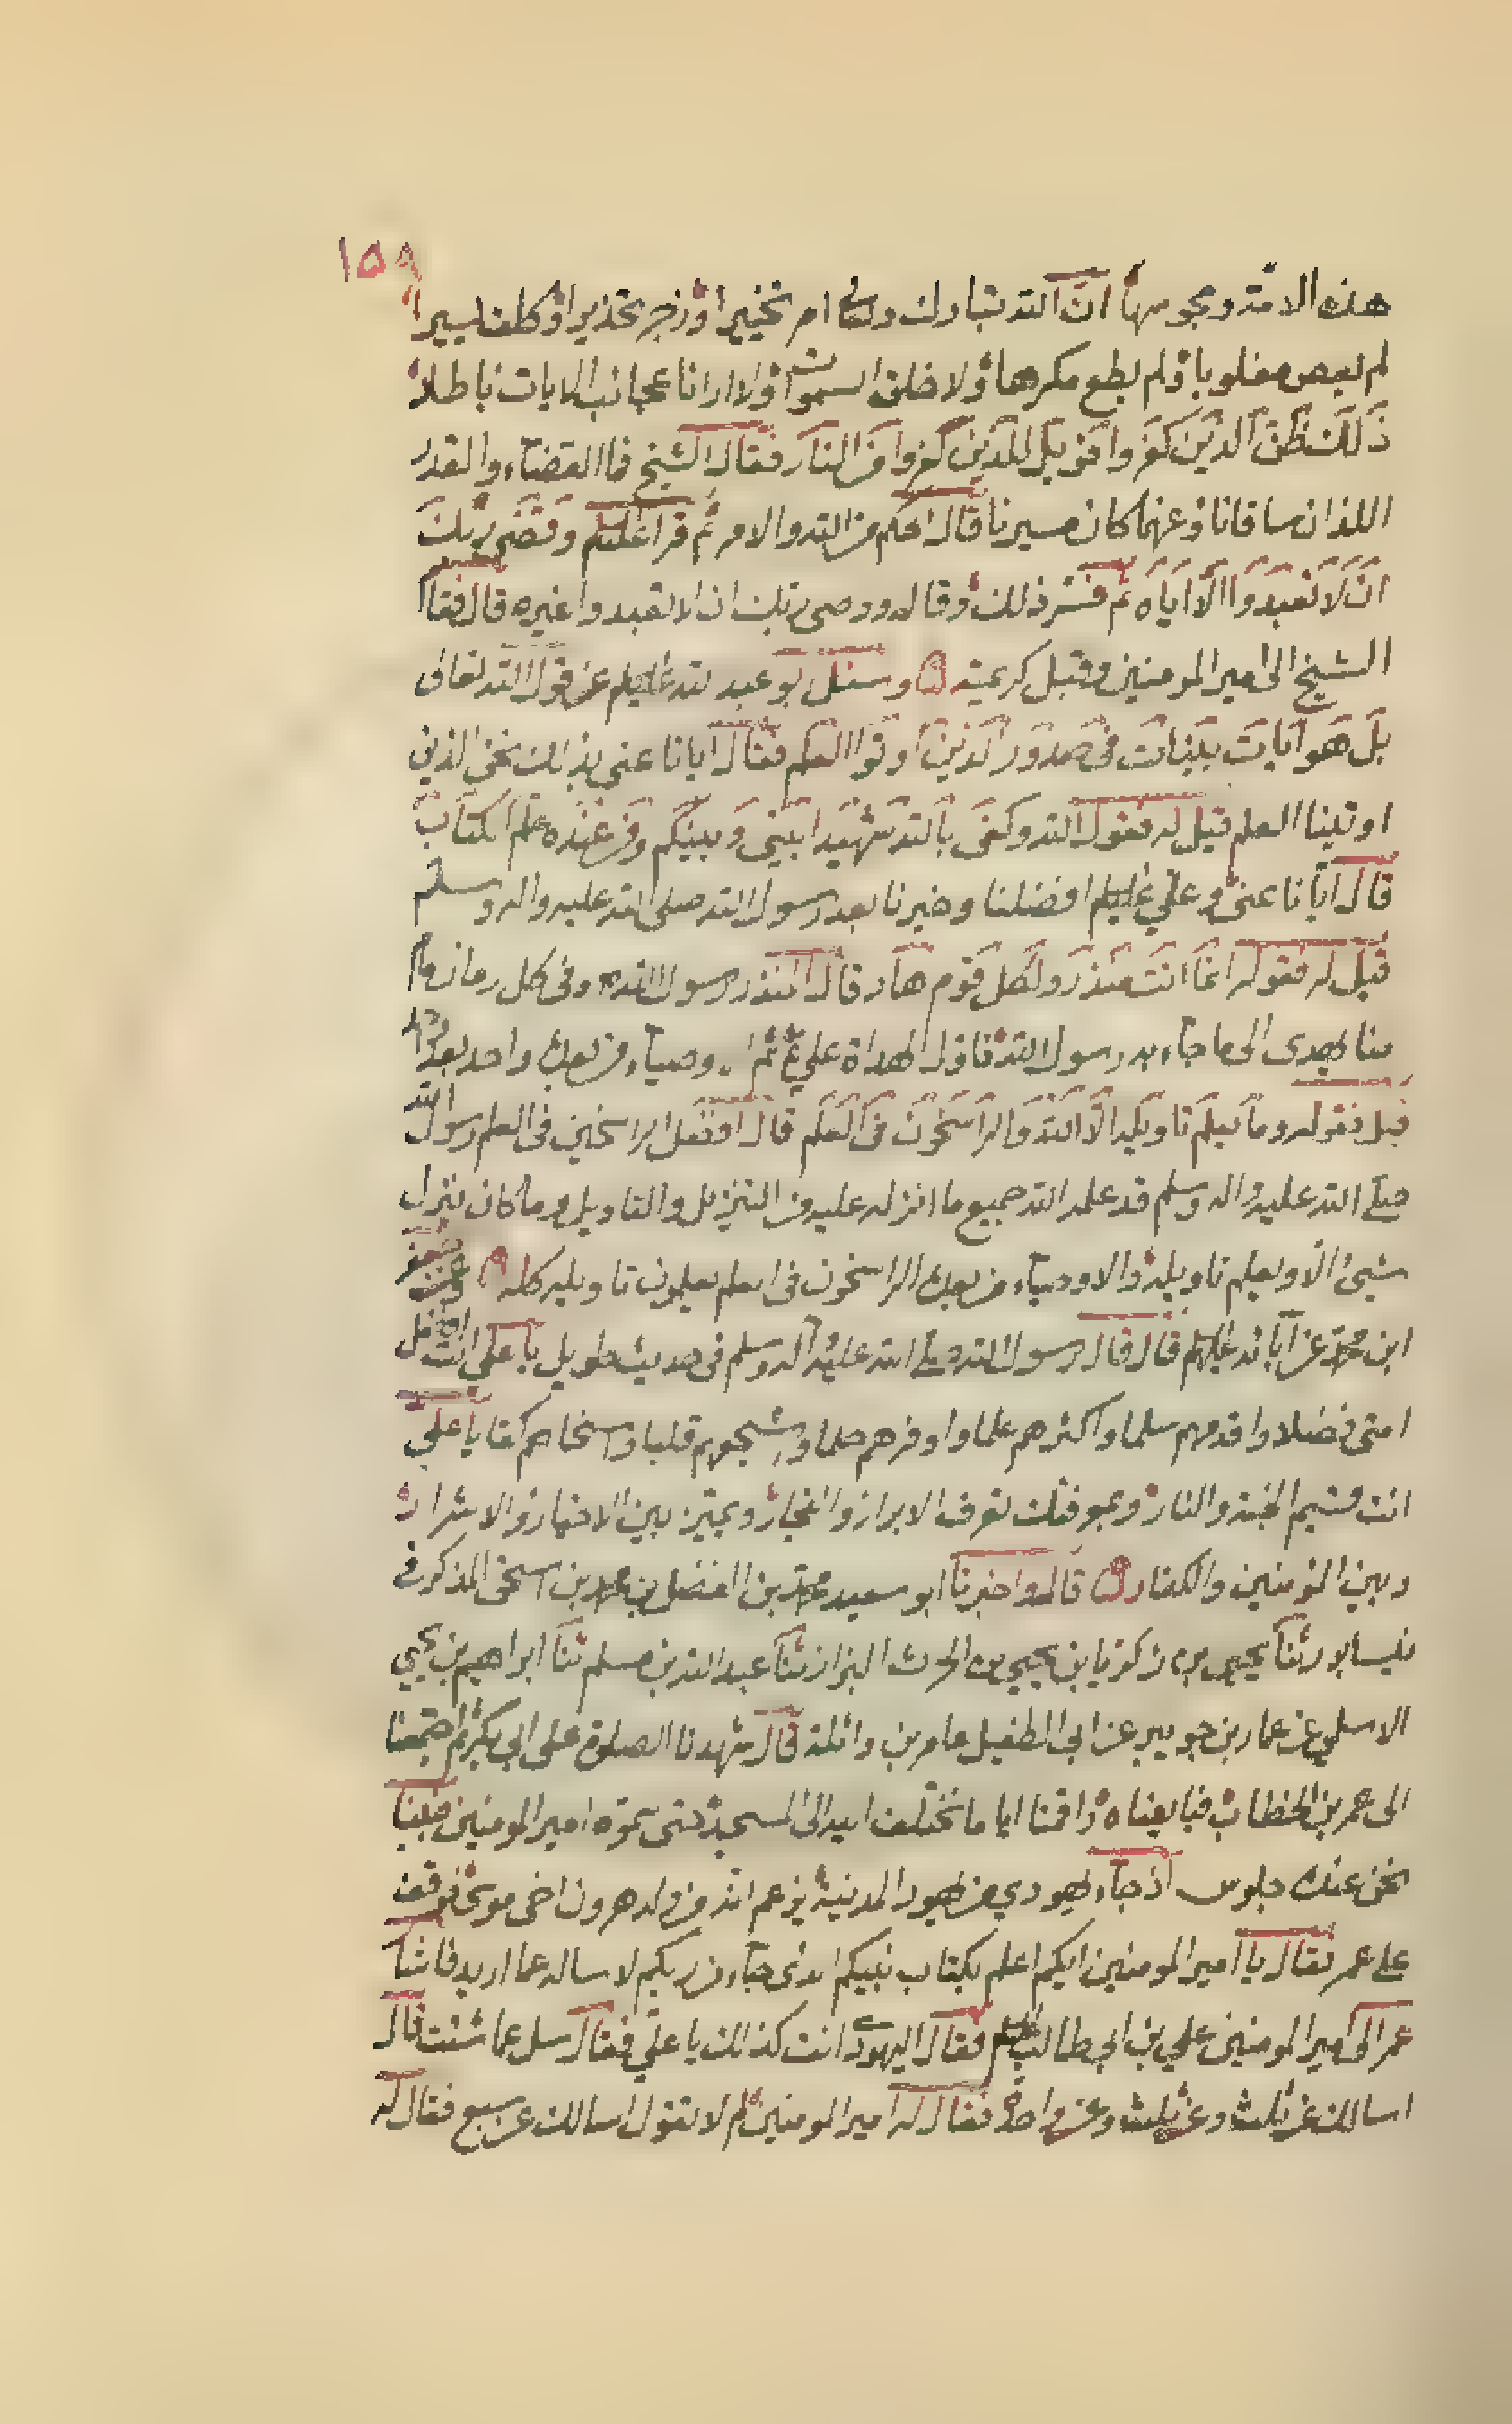 ١٥٩
هذه الامة ومجوسها ان الله تبارك وتعالى امر تخييرا وزجر تحذيرا وكلف يسيرا
لم يعص مغلوبا ولم يطع مكرها ولا خلق السموات ولا ارانا عجائب الايات باطلا
ذلك ظن الذين كفروا فويل للذين كفروا من النار فقال الشيخ فما القضاء والقدر
اللذان ساقانا وعنهما كان مسيرنا قال الحكم من الله والامر ثم قرا عليلم وقضى ربك
ان لا تعبدوا الا اياه ثم فسر ذلك وقال ووصى ربك ان لا تعبدوا غيره قال فقام
الشيخ الى امير المومنين وقبل كريمته وسئل ابو عبد الله عليلم عن قول الله تعالى
بل هو ايات بينات في صدور الذين اوتوا العلم فقال ايانا عنى بذلك نحن الذين
اوتينا العلم قيل له فقول الله وكفى بالله شهيدا بيني وبينكم ومن عنده علم الكتاب
قال ايانا عنى وعلي عليلم افضلنا وخيرنا بعد رسول الله صلى الله عليه واله وسلم
قيل له فقوله انما انت منذر ولكل قوم هاد قال المنذر رسول الله وفي كل زمان امام
منا يهدى الى ما جاء به رسول الله فاول الهداة علي ثم الاوصياء من بعده واحد بعد
قيل فقوله وما يعلم تاويله الا الله والراسخون في العلم قال افضل الراسخين في العلم رسول الله
صلى الله عليه واله وسلم قد علمه الله جميع ما انزله عليه من التنزيل والتاويل وما كان ينزل
شيئ الا ويعلم تاويله والاوصياء من بعده الراسخون في العلم يعلمون تاويله كله وعن جعفر
ابن محمد عن آبائه عليهم قال قال رسول الله صلى الله عليه وآله وسلم في حديث طويل يا على انت افضل
امتى فضلا واقدمهم سلما واكثرهم علما واوفرهم حلما واشجعهم قلبا واسخاهم كفا يا علي
انت قسيم الجنة والنار وبمعرفتك تعرف الابرار والفجار ويميز بين الاخيار والاشرار
وبين المؤمنين والكفار قال واخبرنا ابو سعيد محمد بن الفضل بن محمد بن اسحق المذكر في
نيسابور ثنا يحيى بن زكريا بن يحيى بن الحرث البزاز ثنا عبد الله بن مسلم ثنا ابراهيم بن يحيي
الاسلمي عن عمار بن جوير عن ابى الطفيل عامر بن واثلة قال شهدنا الصلوة على ابى بكر ثم اجتمعنا
الى عمر بن الخطاب فبايعناه واقمنا اياما نختلف اليه الى المسجد حتى سموه امير المومنين فبينا
نحن عنده جلوس اذ جاء يهودي من يهود المدينة يزعم انه من ولد هرون اخى موسى فوقف
على عمر فقال يا امير المومنين ايكم اعلم بكتاب نبيكم الذى جاء من ربكم لاساله عما اريد فاشار
عمر الى امير المومنين علي بن ابي طالب عليلم فقال اليهودى انت كذالك يا علي فقال سل عما شئت قال
اسالك عن ثلث وعن ثلث وعن واحد فقال له امير المومنين لم لا تقول اسالك عن سبع فقال له